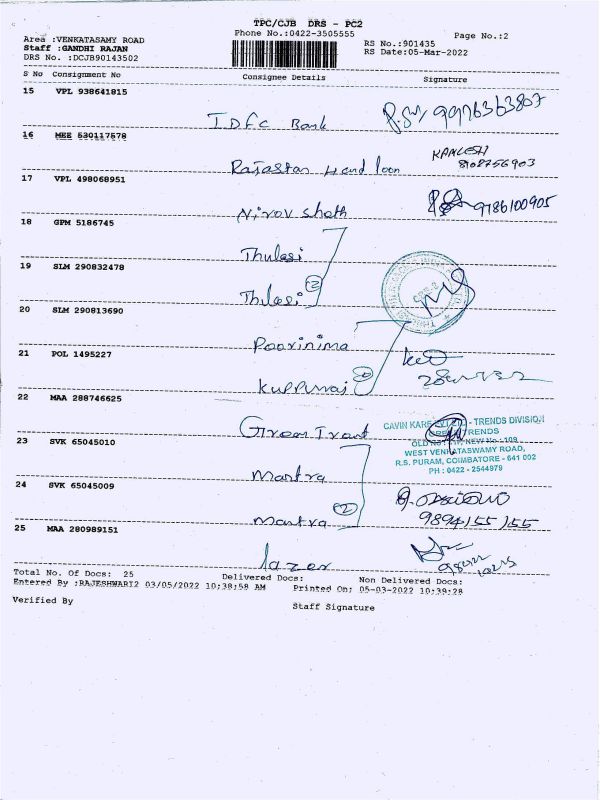 TPC/CJB DRS - PC2
Phone No.:0422-3505555
Page No.:2
Area :VENKATASAMY ROAD
Staff :GANDHI RAJAN
DRS No. :DCJB90143502
RS No.:901435
RS Date:05-Mar-2022
S No Consignment No Consignee Details Signature
15 VPL 938641815
IDFC Bank
16 MEE 530117578
Rajastan Hand loon
KAMLESH
8108756903
17 VPL 498068951
Nirov sheth
9786100905
18 GPM 5186745
Thulasi
19 SLM 290832478
Thulasi (2)
20 SLM 290813690
Poorinima
21 POL 1495227
22 MAA 288746625
CAVIN KARE - TRENDS DIVISION
TRENDS
WEST VENKATASWAMY ROAD,
R.S. PURAM, COIMBATORE - 641 002
PH : 0422 - 2544979
23 SVK 65045010
Mantra
24 SVK 65045009
Mantra (2)
9894155155
25 MAA 280989151
lazer
Total No. Of Docs: 25 Delivered Docs: Non Delivered Docs:
Entered By :RAJESHWARI2 03/05/2022 10:38:58 AM Printed On: 05-03-2022 10:39:28
Verified By
Staff Signature